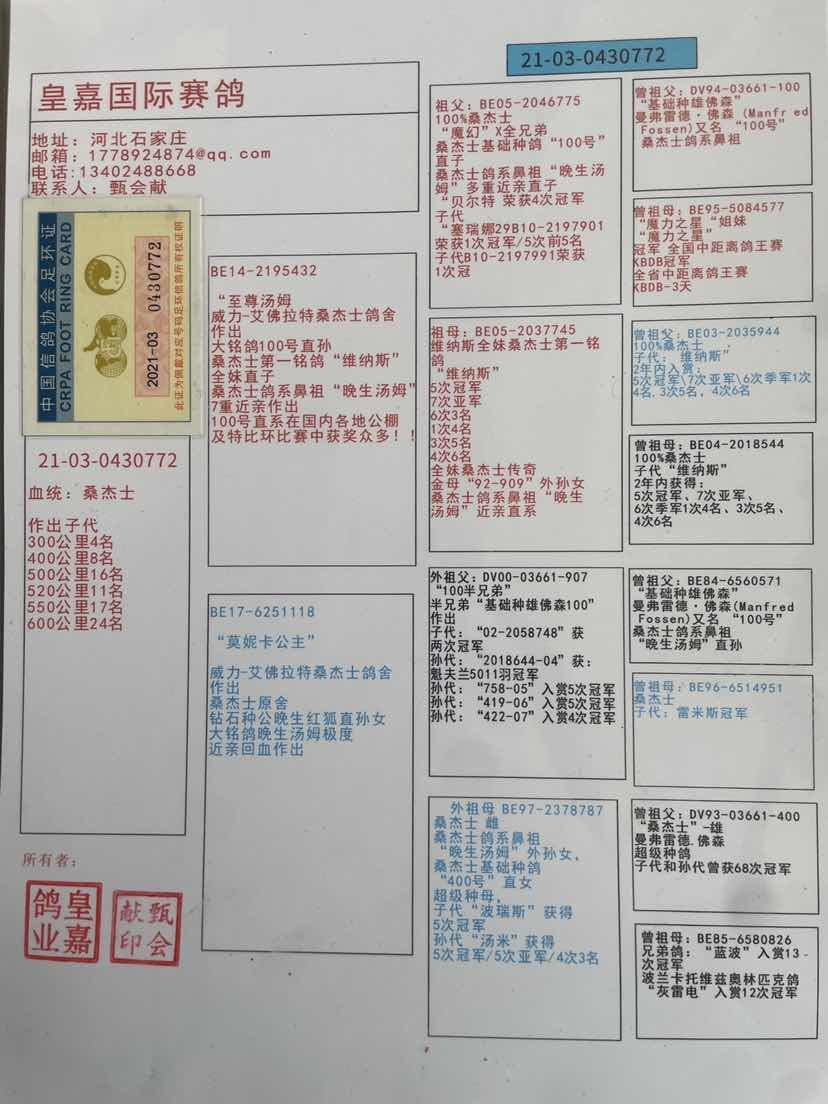 21-03-0430772
皇嘉国际赛鸽
地址：河北石家庄
邮箱：1778924874@qq.com
电话:13402488668
联系人：甄会献
中国信鸽协会足环证
CRPA FOOT RING CARD
2021-03 0430772
此证为佩戴对应号码足环信鸽所有权证明
21-03-0430772
血统：桑杰士
作出子代
300公里4名
400公里8名
500公里16名
520公里11名
550公里17名
600公里24名
所有者：
皇嘉
鸽业
甄会
献印
BE14-2195432
“至尊汤姆
威力-艾佛拉特桑杰士鸽舍
作出
大铭鸽100号直孙
桑杰士第一铭鸽“维纳斯”
全妹直子
桑杰士鸽系鼻祖“晚生汤姆”
7重近亲作出
100号直系在国内各地公棚
及特比环比赛中获奖众多！！
BE17-6251118
“莫妮卡公主”
威力-艾佛拉特桑杰士鸽舍
作出
桑杰士原舍
钻石种公晚生红狐直孙女
大铭鸽晚生汤姆极度
近亲回血作出
祖父：BE05-2046775
100%桑杰士
“魔幻”X全兄弟
桑杰士基础种鸽“100号”
直子
桑杰士鸽系鼻祖“晚生汤
姆”多重近亲直子
“贝尔特 荣获4次冠军
子代
“塞瑞娜29B10-2197901
荣获1次冠军/5次前5名
子代B10-2197991荣获
1次冠
祖母：BE05-2037745
维纳斯全妹桑杰士第一铭
鸽
“维纳斯”
5次冠军
7次亚军
6次3名
1次4名
3次5名
4次6名
全妹桑杰士传奇
金母“92-909”外孙女
桑杰士鸽系鼻祖“晚生
汤姆”近亲直系
外祖父：DV00-03661-907
“100半兄弟”
半兄弟“基础种雄佛森100”
作出
子代：“02-2058748”获
两次冠军
孙代：“2018644-04”获：
魁夫兰5011羽冠军
孙代：“758-05”入赏5次冠军
孙代：“419-06”入赏5次冠军
孙代：“422-07”入赏4次冠军
外祖母 BE97-2378787
桑杰士 雌
桑杰士鸽系鼻祖
“晚生汤姆”外孙女，
桑杰士基础种鸽
“400号”直女
超级种母，
子代“波瑞斯”获得
5次冠军
孙代“汤米”获得
5次冠军/5次亚军/4次3名
曾祖父：DV94-03661-100
“基础种雄佛森”
曼弗雷德·佛森（Manfr ed
Fossen)又名 “100号”
桑杰士鸽系鼻祖
曾祖母：BE95-5084577
“魔力之星“姐妹
“魔力之星”
冠军 全国中距离鸽王赛
KBDB冠军
全省中距离鸽王赛
KBDB-3天
曾祖父：BE03-2035944
100%桑杰士
子代： 维纳斯”
2年内入赏：
5次冠军\7次亚军\6次季军1次
4名，3次5名，4次6名
曾祖母：BE04-2018544
100%桑杰士
子代“维纳斯”
2年内获得：
5次冠军、7次亚军、
6次季军1次4名、3次5名、
4次6名
曾祖父：BE84-6560571
“基础种雄佛森”
曼弗雷德·佛森(Manfred
Fossen)又名 “100号”
桑杰士鸽系鼻祖
“晚生汤姆”直孙
曾祖母：BE96-6514951
桑杰士
子代：雷米斯冠军
曾祖父：DV93-03661-400
“桑杰士”-雄
曼弗雷德.佛森
超级种鸽
子代和孙代曾获68次冠军
曾祖母：BE85-6580826
兄弟鸽：“蓝波”入赏13-
次冠军
波兰卡托维兹奥林匹克鸽
“灰雷电”入赏12次冠军